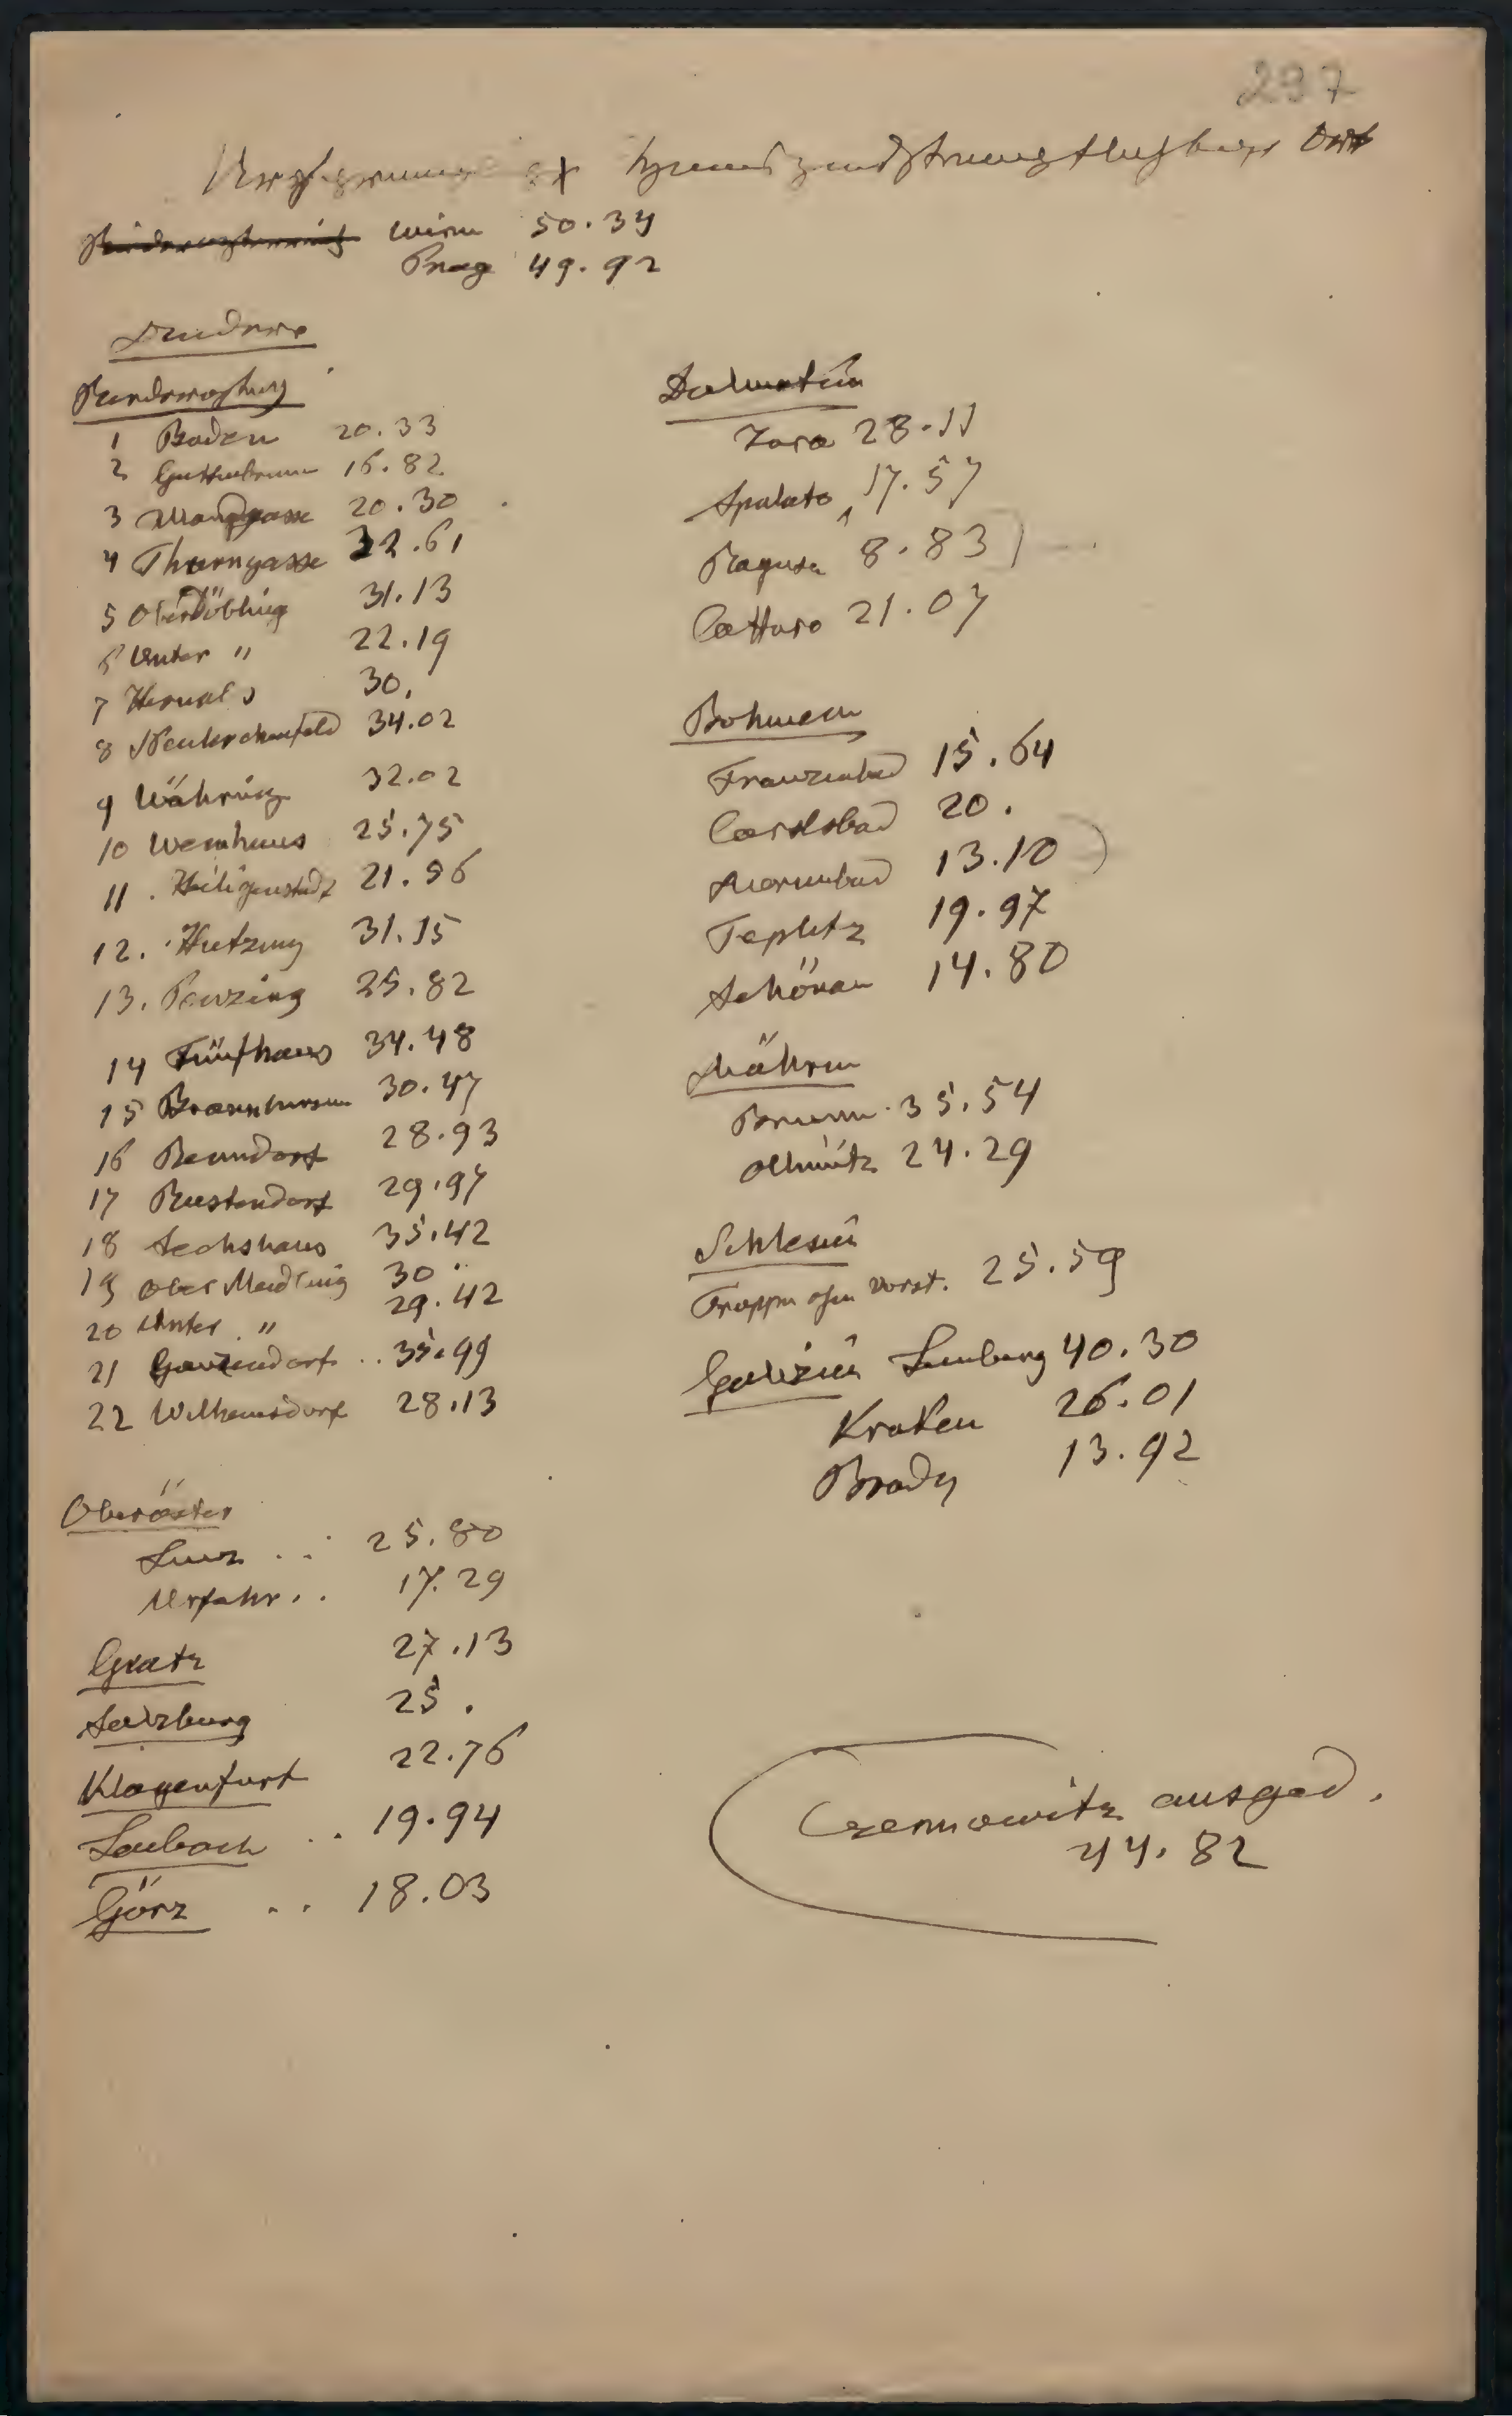 297
Wien 50.34
Prag 49.92
Andere
1 Baden 20.33
2 Guttenbrunn 16.82
3 20.30
4 Thurngasse 32.61
5 Oberdöbling 31.13
6 Unter " 22.19
7 Hernals 30.
8 Neulerchenfeld 34.02
9 Währing 32.02
10 Weinhaus 25.75
11. Heiligenstadt 21.96
12. Hietzing 31.15
13. Penzing 25.82
14 Fünfhaus 34.48
15 Braunhirsen 30.47
16 Reindorf 28.93
17 Rustendorf 29.97
18 Sechshaus 35.42
19 Ober Meidling 30.
20 Unter " 29.42
21 Gaudendorf .. 35.99
22 Wilhemsdorf 28.13
Oberöster
Linz ... 25.80
Urfahr .. 17.29
Gratz 27.13
Salzburg 25.
Klagenfurt 22.76
Laibach .. 19.94
Görz .. 18.03
Dalmatien
Zara 28.11
Spalato 17.57
Ragusa 8.83
Cattaro 21.07
Bohmen
Franzensbad 15.64
Carlsbad 20.
Marienbad 13.10
Teplitz 19.97
Schönau 14.80
Mähren
Brünn. 35.54
Olmütz 24.29
Schlesien
Troppau ohne Vorst. 25.59
Galizien Lemberg 40.30
Krakau 26.01
Brody 13.92
Czernowitz ausged.
44.82